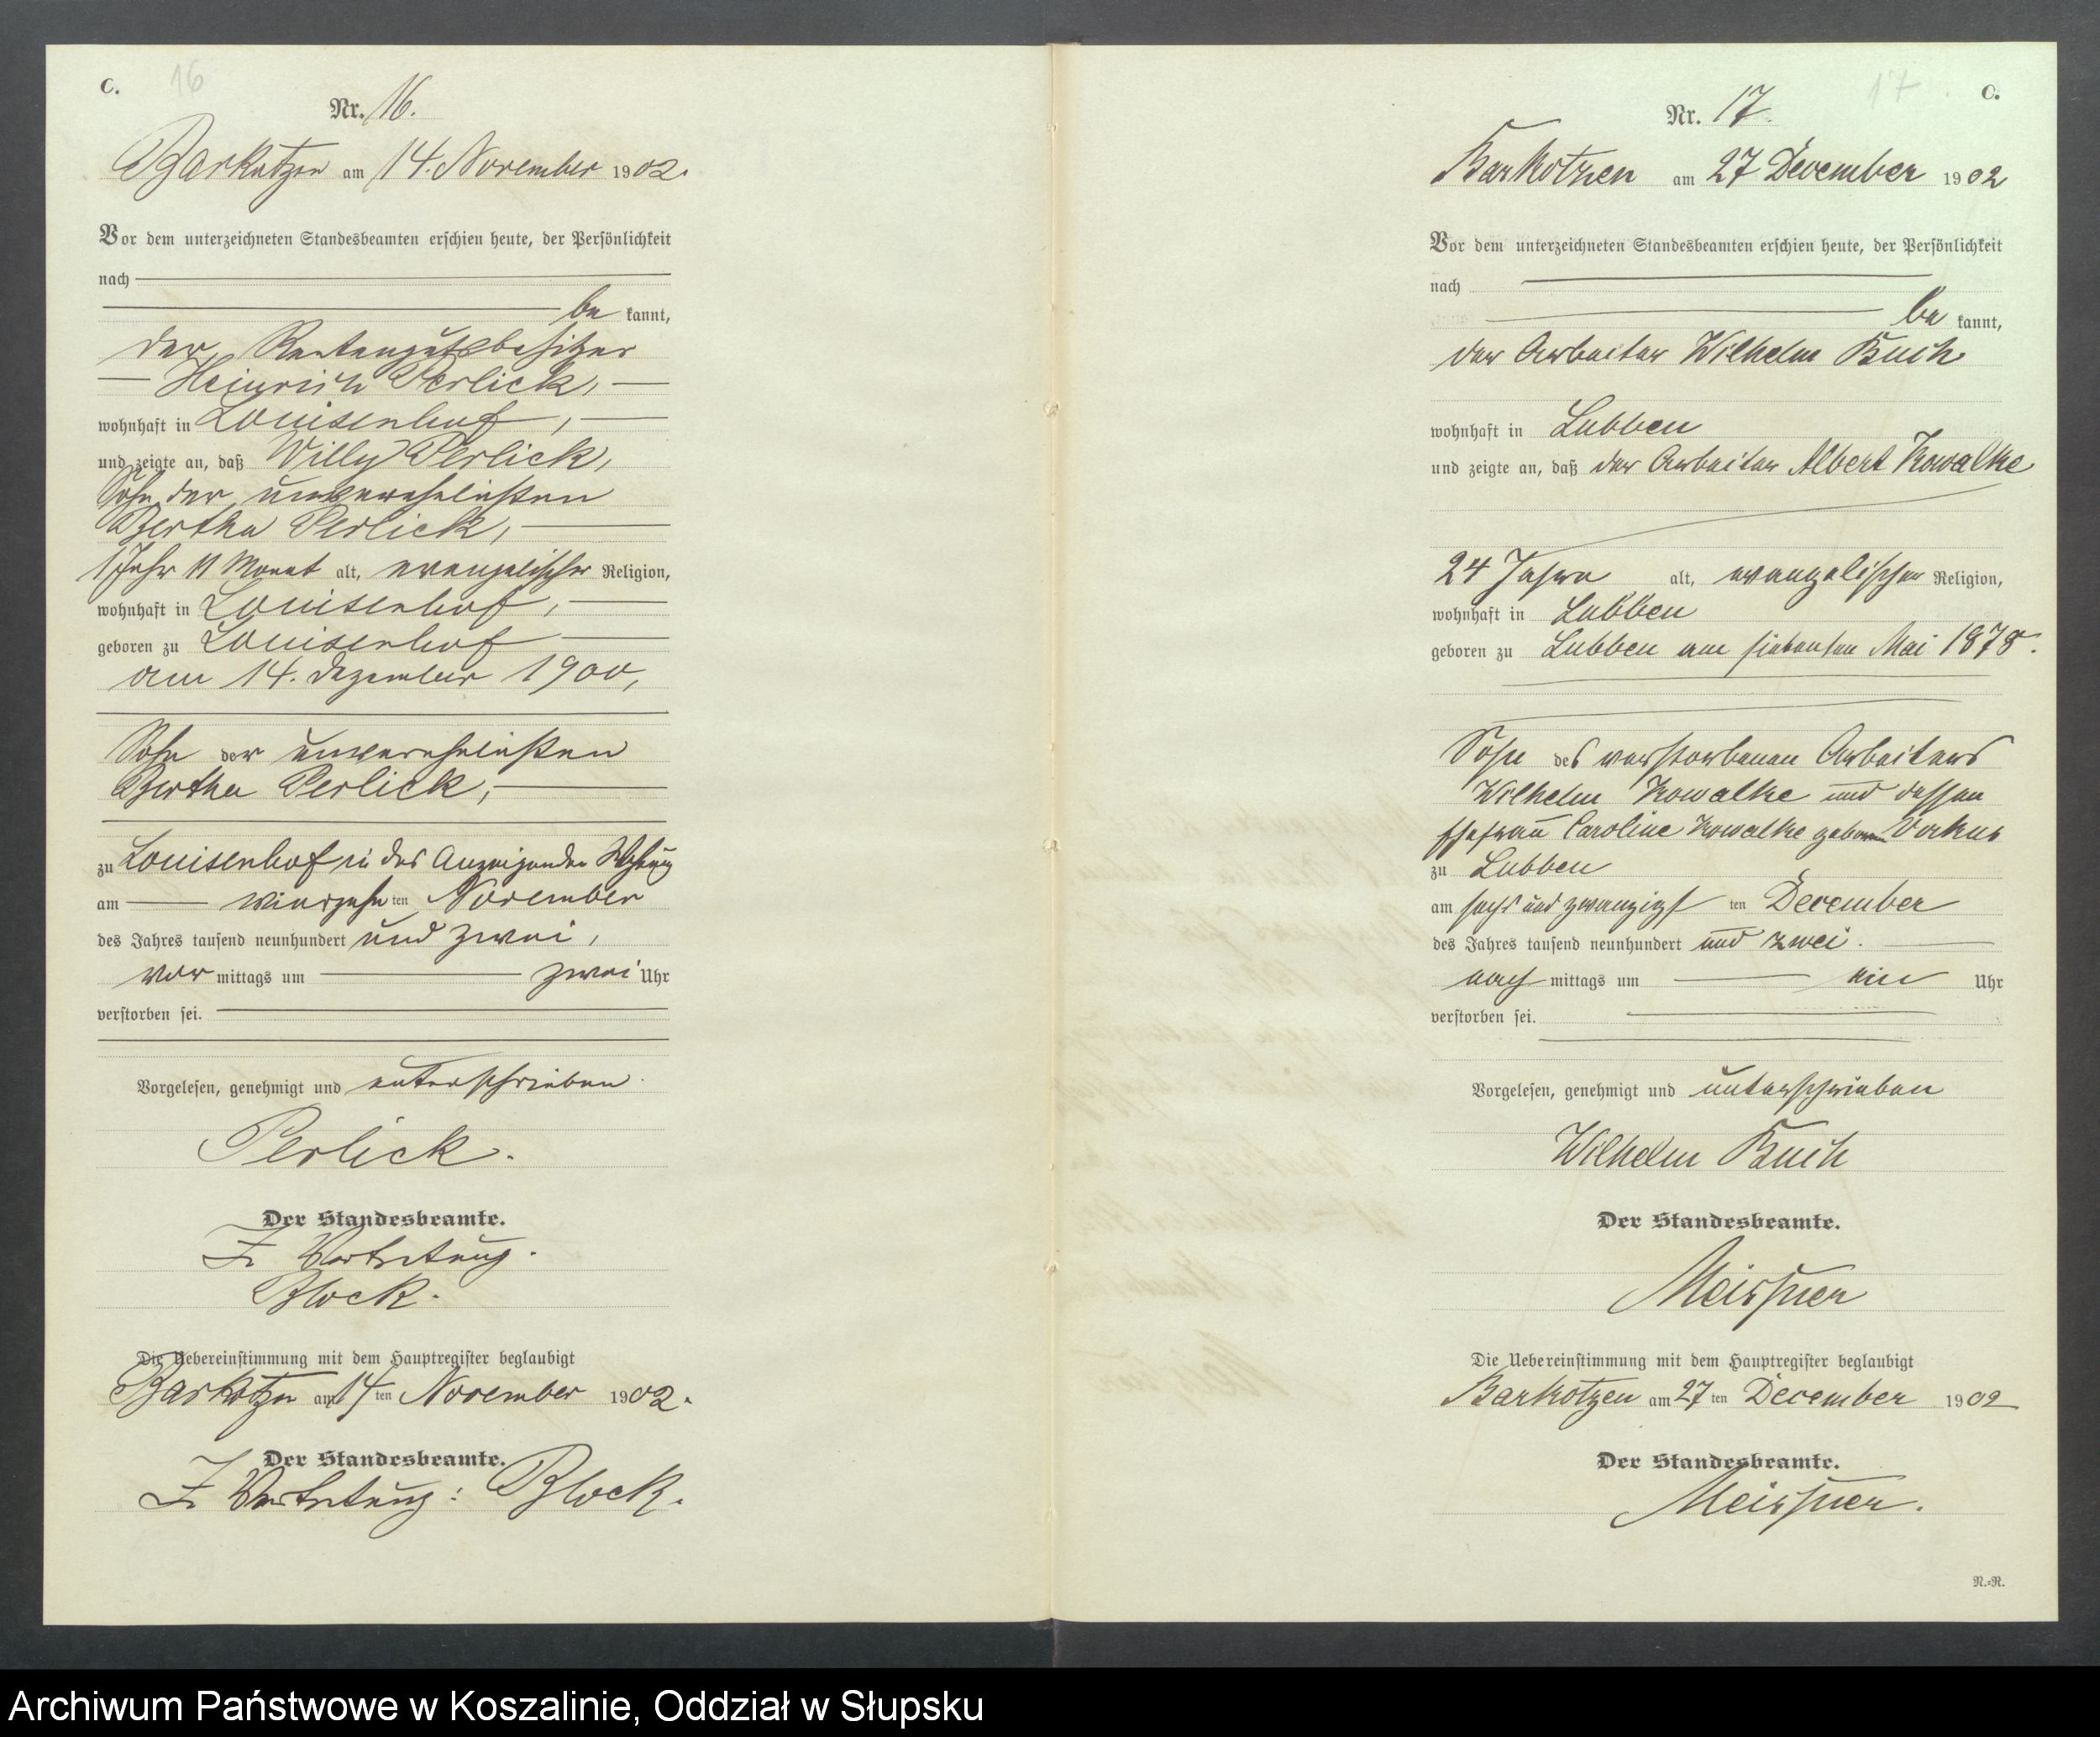 C.
16
Nr. 16.
Barkotzen am 14. November 1902.
Vor dem unterzeichneten Standesbeamten erschien heute, der Persönlichkeit
nach
be kannt,
der Rentengutsbesitzer
Heinrich Perlick,
wohnhaft in Louisenhof,
und zeigte an, daß Willy Perlick,
Sohn der unverehelichten
Bertha Perlick,
1 Jahr 11 Monat alt, evangelischer Religion,
wohnhaft in Louisenhof,
geboren zu Louisenhof
am 14. Dezember 1900,
Sohn der unverehelichten
Bertha Perlick,
zu Louisenhof in des Anzeigenden Wohnung
am vierzehn ten November
des Jahres tausend neunhundert und zwei,
vor mittags um zwei Uhr
verstorben sei.
Vorgelesen, genehmigt und unterschrieben.
Perlick.
Der Standesbeamte.
In Vertretung.
Block.
Die Uebereinstimmung mit dem Hauptregister beglaubigt
Barkotzen am 14 ten November 1902.
Der Standesbeamte.
In Vertretung: Block.
17
C.
Nr. 17.
Barkotzen am 27 December 1902
Vor dem unterzeichneten Standesbeamten erschien heute, der Persönlichkeit
nach
be kannt,
der Arbeiter Wilhelm Buch
wohnhaft in Lubben
und zeigte an, daß der Arbeiter Albert Kowalke
24 Jahre alt, evangelischer Religion,
wohnhaft in Lubben
geboren zu Lubben am siebenten Mai 1878.
Sohn des verstorbenen Arbeiters
Wilhelm Kowalke und dessen
Ehefrau Caroline Kowalke geboren
zu Lubben
am sechs und zwanzigst ten December
des Jahres tausend neunhundert und zwei.
nach mittags um ein Uhr
verstorben sei.
Vorgelesen, genehmigt und unterschrieben
Wilhelm Buch
Der Standesbeamte.
Meissner
Die Uebereinstimmung mit dem Hauptregister beglaubigt
Barkotzen am 27 ten December 1902
Der Standesbeamte.
Meissner.
N.=R.
Archiwum Państwowe w Koszalinie, Oddział w Słupsku